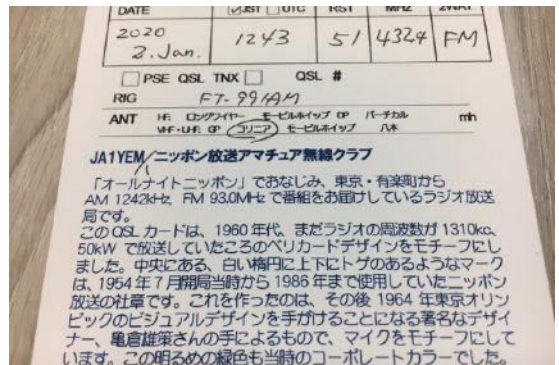 DATE ☑JST □UTC RST MHz 2WAY
2020 2. Jan. 1243 51 432.4 FM
□ PSE QSL TNX □ QSL #
RIG FT-991AM
ANT HF: ロングワイヤー モービルホイップ DP バーチカル mh
VHF・UHF: GP コリニア モービルホイップ 八木
JA1YEM/ニッポン放送アマチュア無線クラブ
「オールナイトニッポン」でおなじみ、東京・有楽町から
AM 1242kHz, FM 93.0MHz で番組をお届けしているラジオ放送
局です。
この QSL カードは、1960 年代、まだラジオの周波数が 1310kc,
50kW で放送していたころのベリカードデザインをモチーフにし
ました。中央にある、白い楕円に上下にトゲのあるようなマーク
は、1954 年 7 月開局当時から 1986 年まで使用していたニッポン
放送の社章です。これを作ったのは、その後 1964 年東京オリン
ピックのビジュアルデザインを手がけることになる著名なデザイ
ナー、亀倉雄策さんの手によるもので、マイクをモチーフにして
います。この明るめの緑色も当時のコーポレートカラーでした。